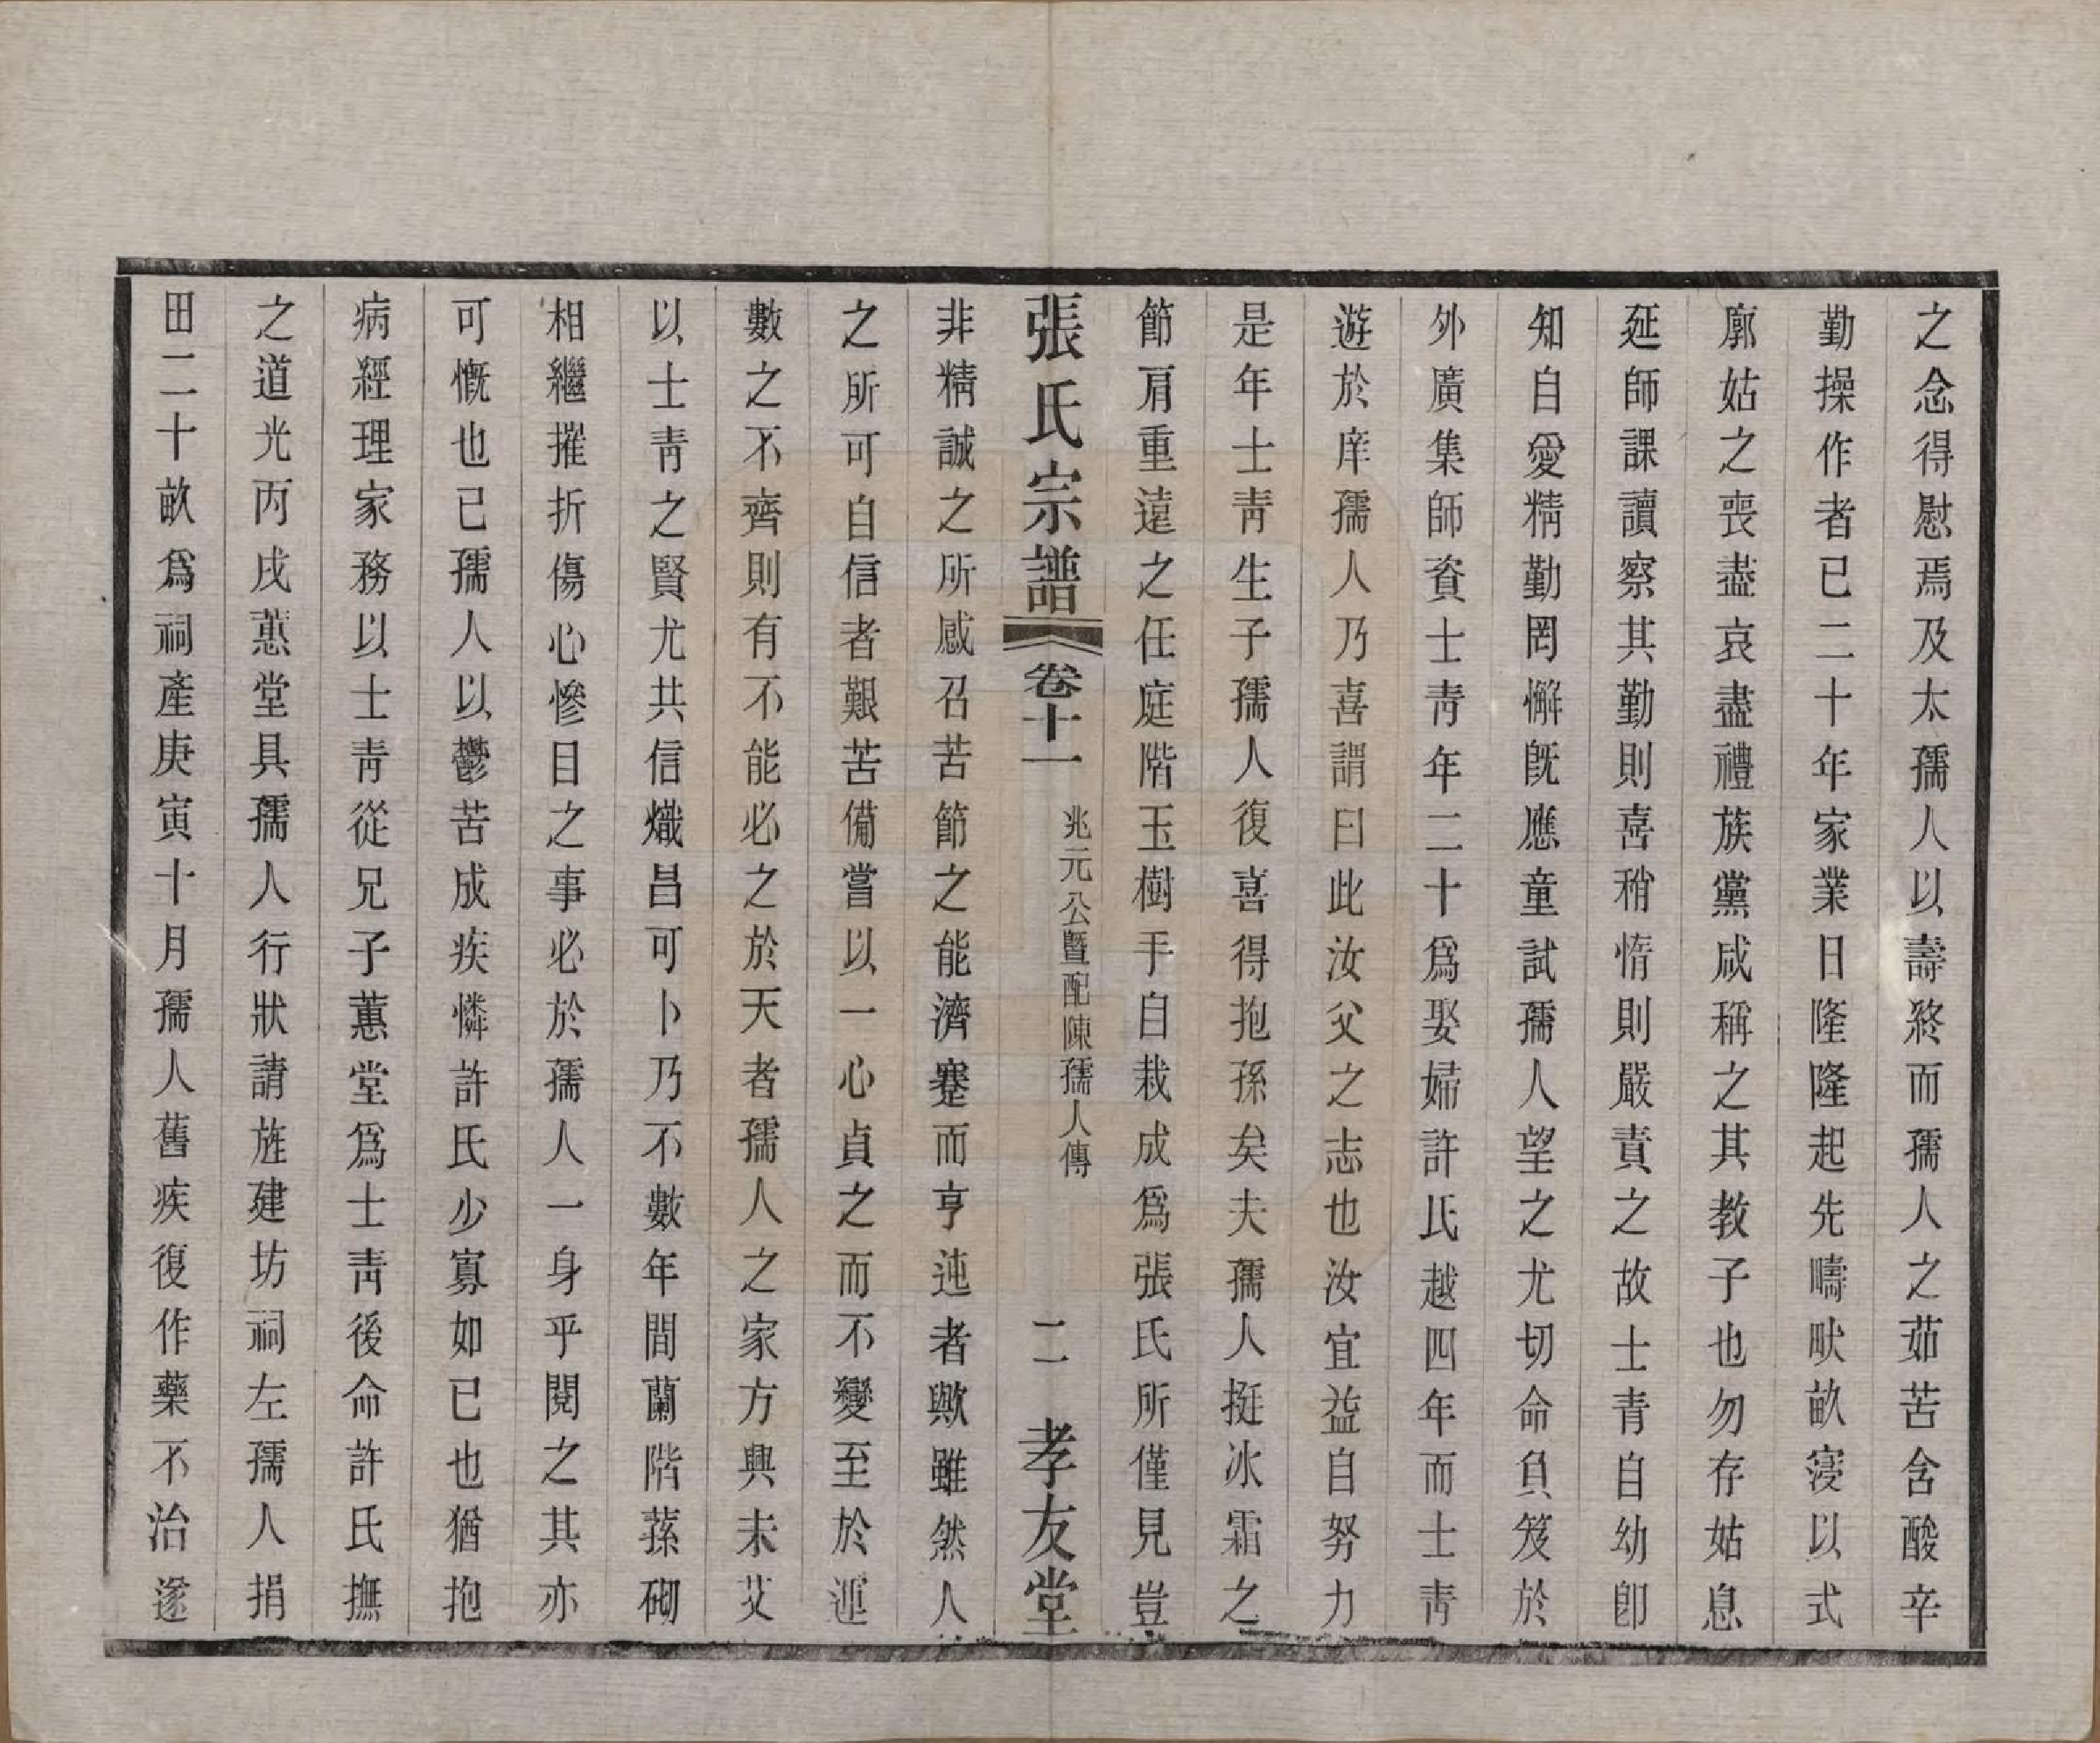 之念得慰焉及太孺人以壽終而孺人之茹苦含酸辛
勤操作者已二十年家業日隆隆起先疇畎畝寖以式
廓姑之喪盡哀盡禮族黨咸稱之其教子也勿存姑息
延師課讀察其勤則喜稍惰則嚴責之故士青自幼卽
知自愛精勤罔懈旣應童試孺人望之尤切命負笈於
外廣集師資士靑年二十爲娶婦許氏越四年而士靑
遊於庠孺人乃喜謂曰此汝父之志也汝宜益自努力
是年士靑生子孺人復喜得抱孫矣夫孺人挺冰霜之
節肩重遠之任庭階玉樹手自栽成爲張氏所僅見豈
張氏宗譜 卷十一 兆元公曁配陳孺人傳 二 孝友堂
非精誠之所感召苦節之能濟蹇而亨迍者歟雖然人
之所可自信者艱苦備嘗以一心貞之而不變至於運
數之不齊則有不能必之於天者孺人之家方興未艾
以士靑之賢尤共信熾昌可卜乃不數年間蘭階蓀砌
相繼摧折傷心慘目之事必於孺人一身乎閱之其亦
可慨也已孺人以鬱苦成疾憐許氏少寡如已也猶抱
病經理家務以士靑從兄子蕙堂爲士靑後命許氏撫
之道光丙戌蕙堂具孺人行狀請旌建坊祠左孺人捐
田二十畝爲祠產庚寅十月孺人舊疾復作藥不治遂